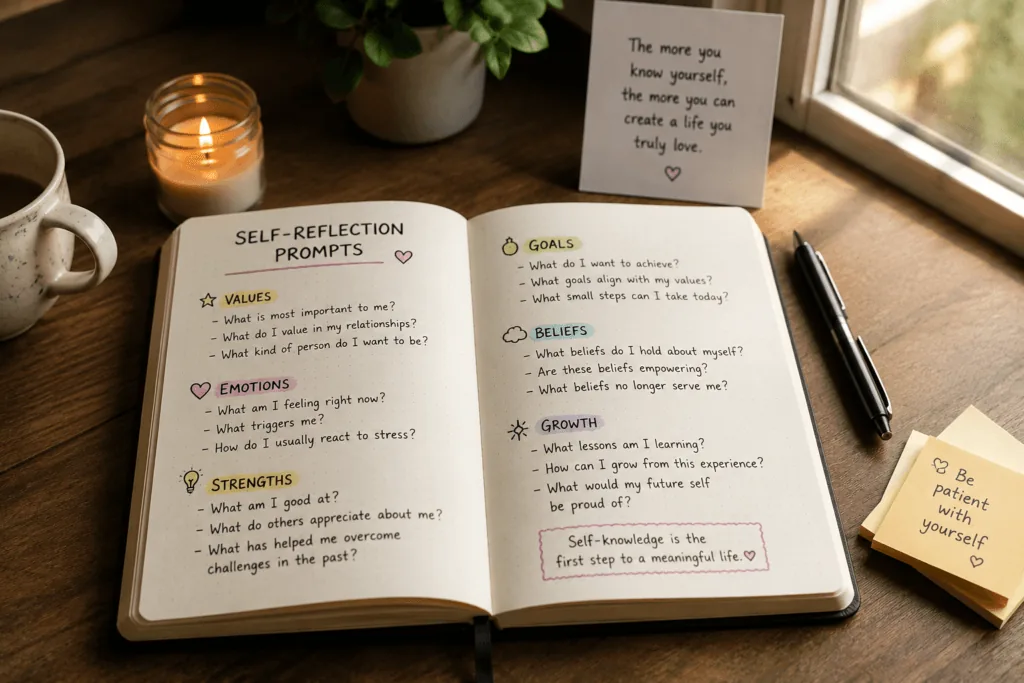 The more you
know yourself,
the more you can
create a life you
truly love.
SELF-REFLECTION
PROMPTS
VALUES
- What is most important to me?
- What do I value in my relationships?
- What kind of person do I want to be?
EMOTIONS
- What am I feeling right now?
- What triggers me?
- How do I usually react to stress?
STRENGTHS
- What am I good at?
- What do others appreciate about me?
- What has helped me overcome
challenges in the past?
GOALS
- What do I want to achieve?
- What goals align with my values?
- What small steps can I take today?
BELIEFS
- What beliefs do I hold about myself?
- Are these beliefs empowering?
- What beliefs no longer serve me?
GROWTH
- What lessons am I learning?
- How can I grow from this experience?
- What would my future self
be proud of?
Self-knowledge is the
first step to a meaningful life.
Be
patient
with
yourself